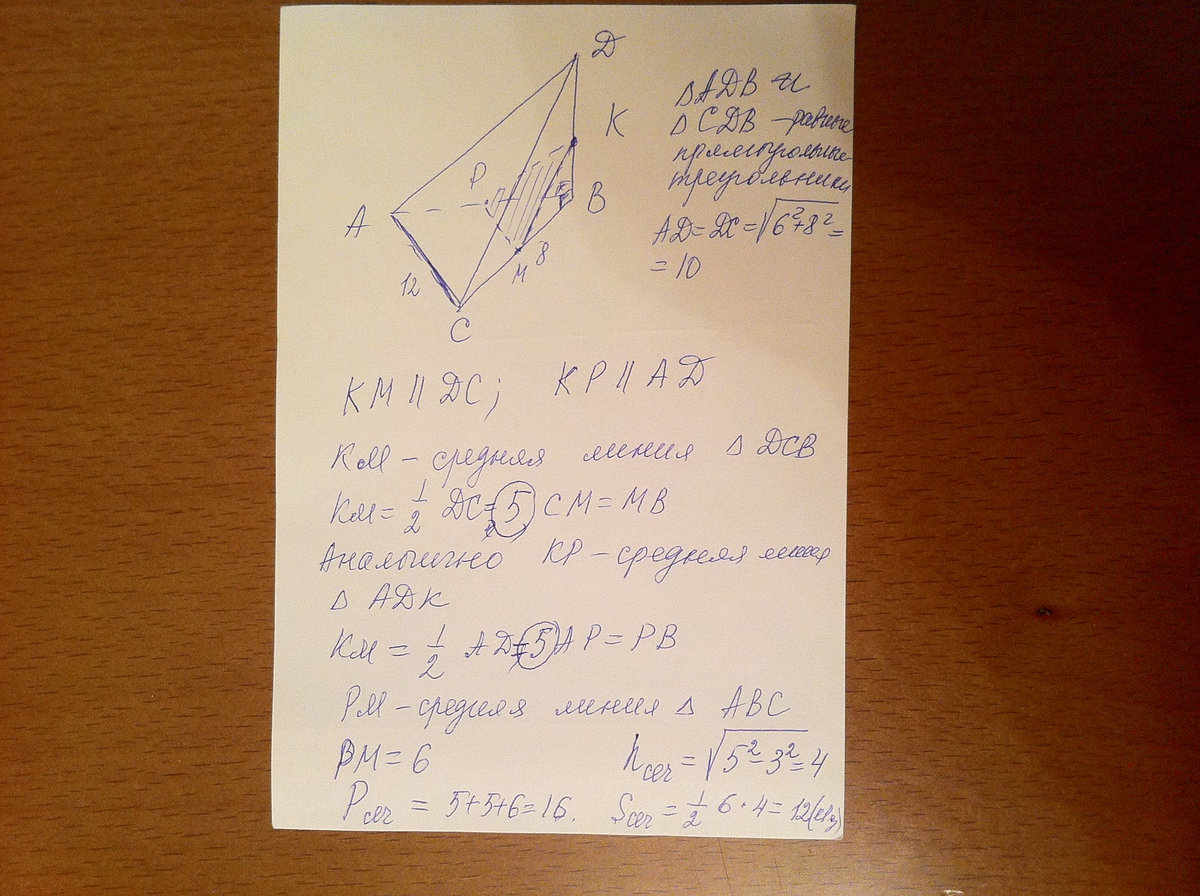 D
K
P
B
A
12
8
M
C
△ADB и
△CDB – равные
прямоугольные
треугольники
AD=DC=√6²+8²=
=10
KM || DC; KP || AD
KM – средняя линия △ DCB
KM= 1/2 DC=5, CM=MB
Аналогично KP – средняя линия
△ ADK
KM = 1/2 AD=5 AP=PB
PM – средняя линия △ ABC
PM=6
hсеч = √5²-3²=4
Pсеч = 5+5+6=16.
Sсеч = 1/2 6·4=12